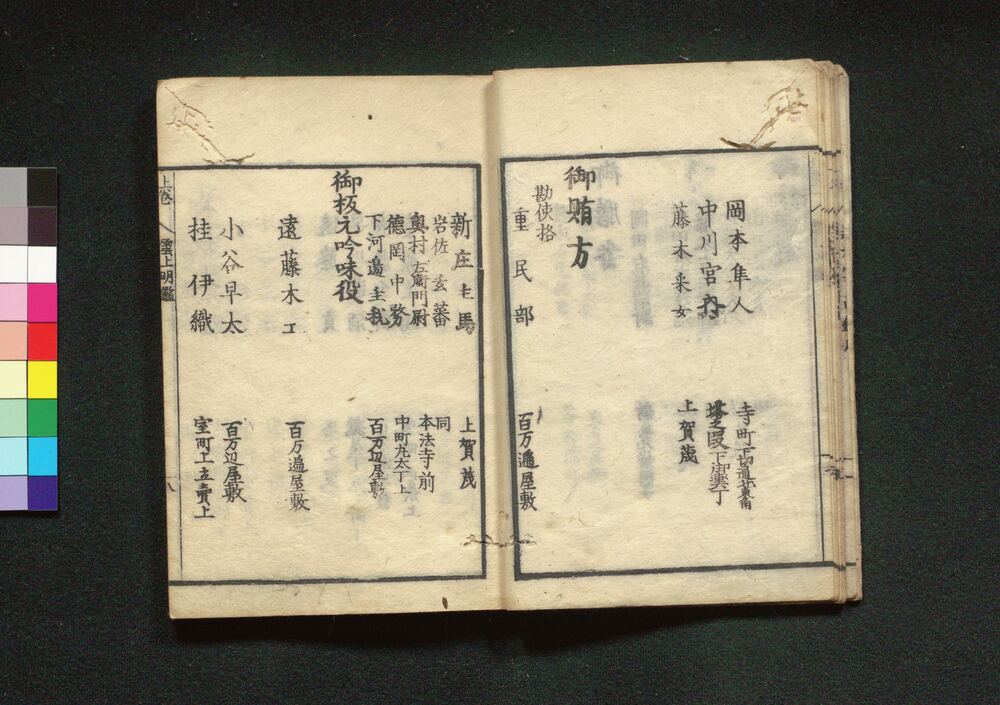 岡本隼人
寺町下切通北東角
中川宮内
塔之段下御霊丁
藤木采女
上賀茂
御賄方
勘使格
重民部
百万遍屋敷
新庄主馬
上賀茂
岩佐玄蕃
同
奥村右衛門尉
本法寺前
徳岡中務
中町丸太丁上
下河邉主税
百万辺屋敷
御板元吟味役
遠藤木工
百万遍屋敷
小谷早太
百万辺屋敷
桂伊織
室町上立賣上
上巻
雲上明鑑
八